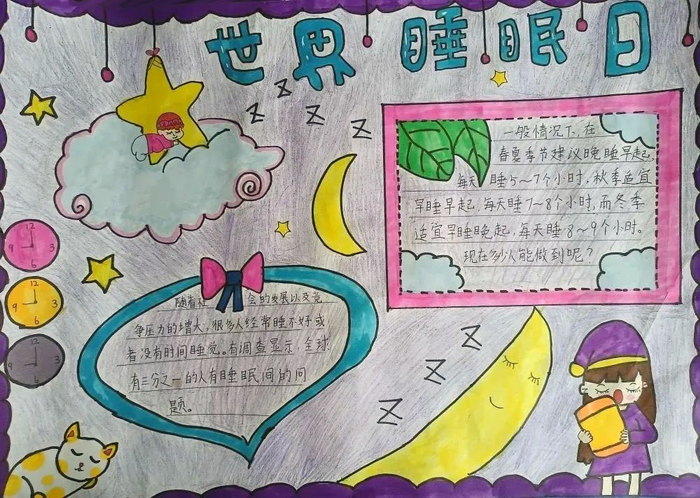 世界睡眠日
z
z
z
z
一般情况下,在
春夏季节建议晚睡早起,
每天睡5~7个小时,秋季适宜
早睡早起,每天睡7~8个小时,而冬季
适宜早睡晚起,每天睡8~9个小时。
现在多少人能做到呢?
12
9 3
6
12
9 3
6
12
9 3
6
随着社会的发展以及竞
争压力的增大,很多人经常睡不好或
者没有时间睡觉。有调查显示,全球
有三分之一的人有睡眠间的问
题。
z
z
z